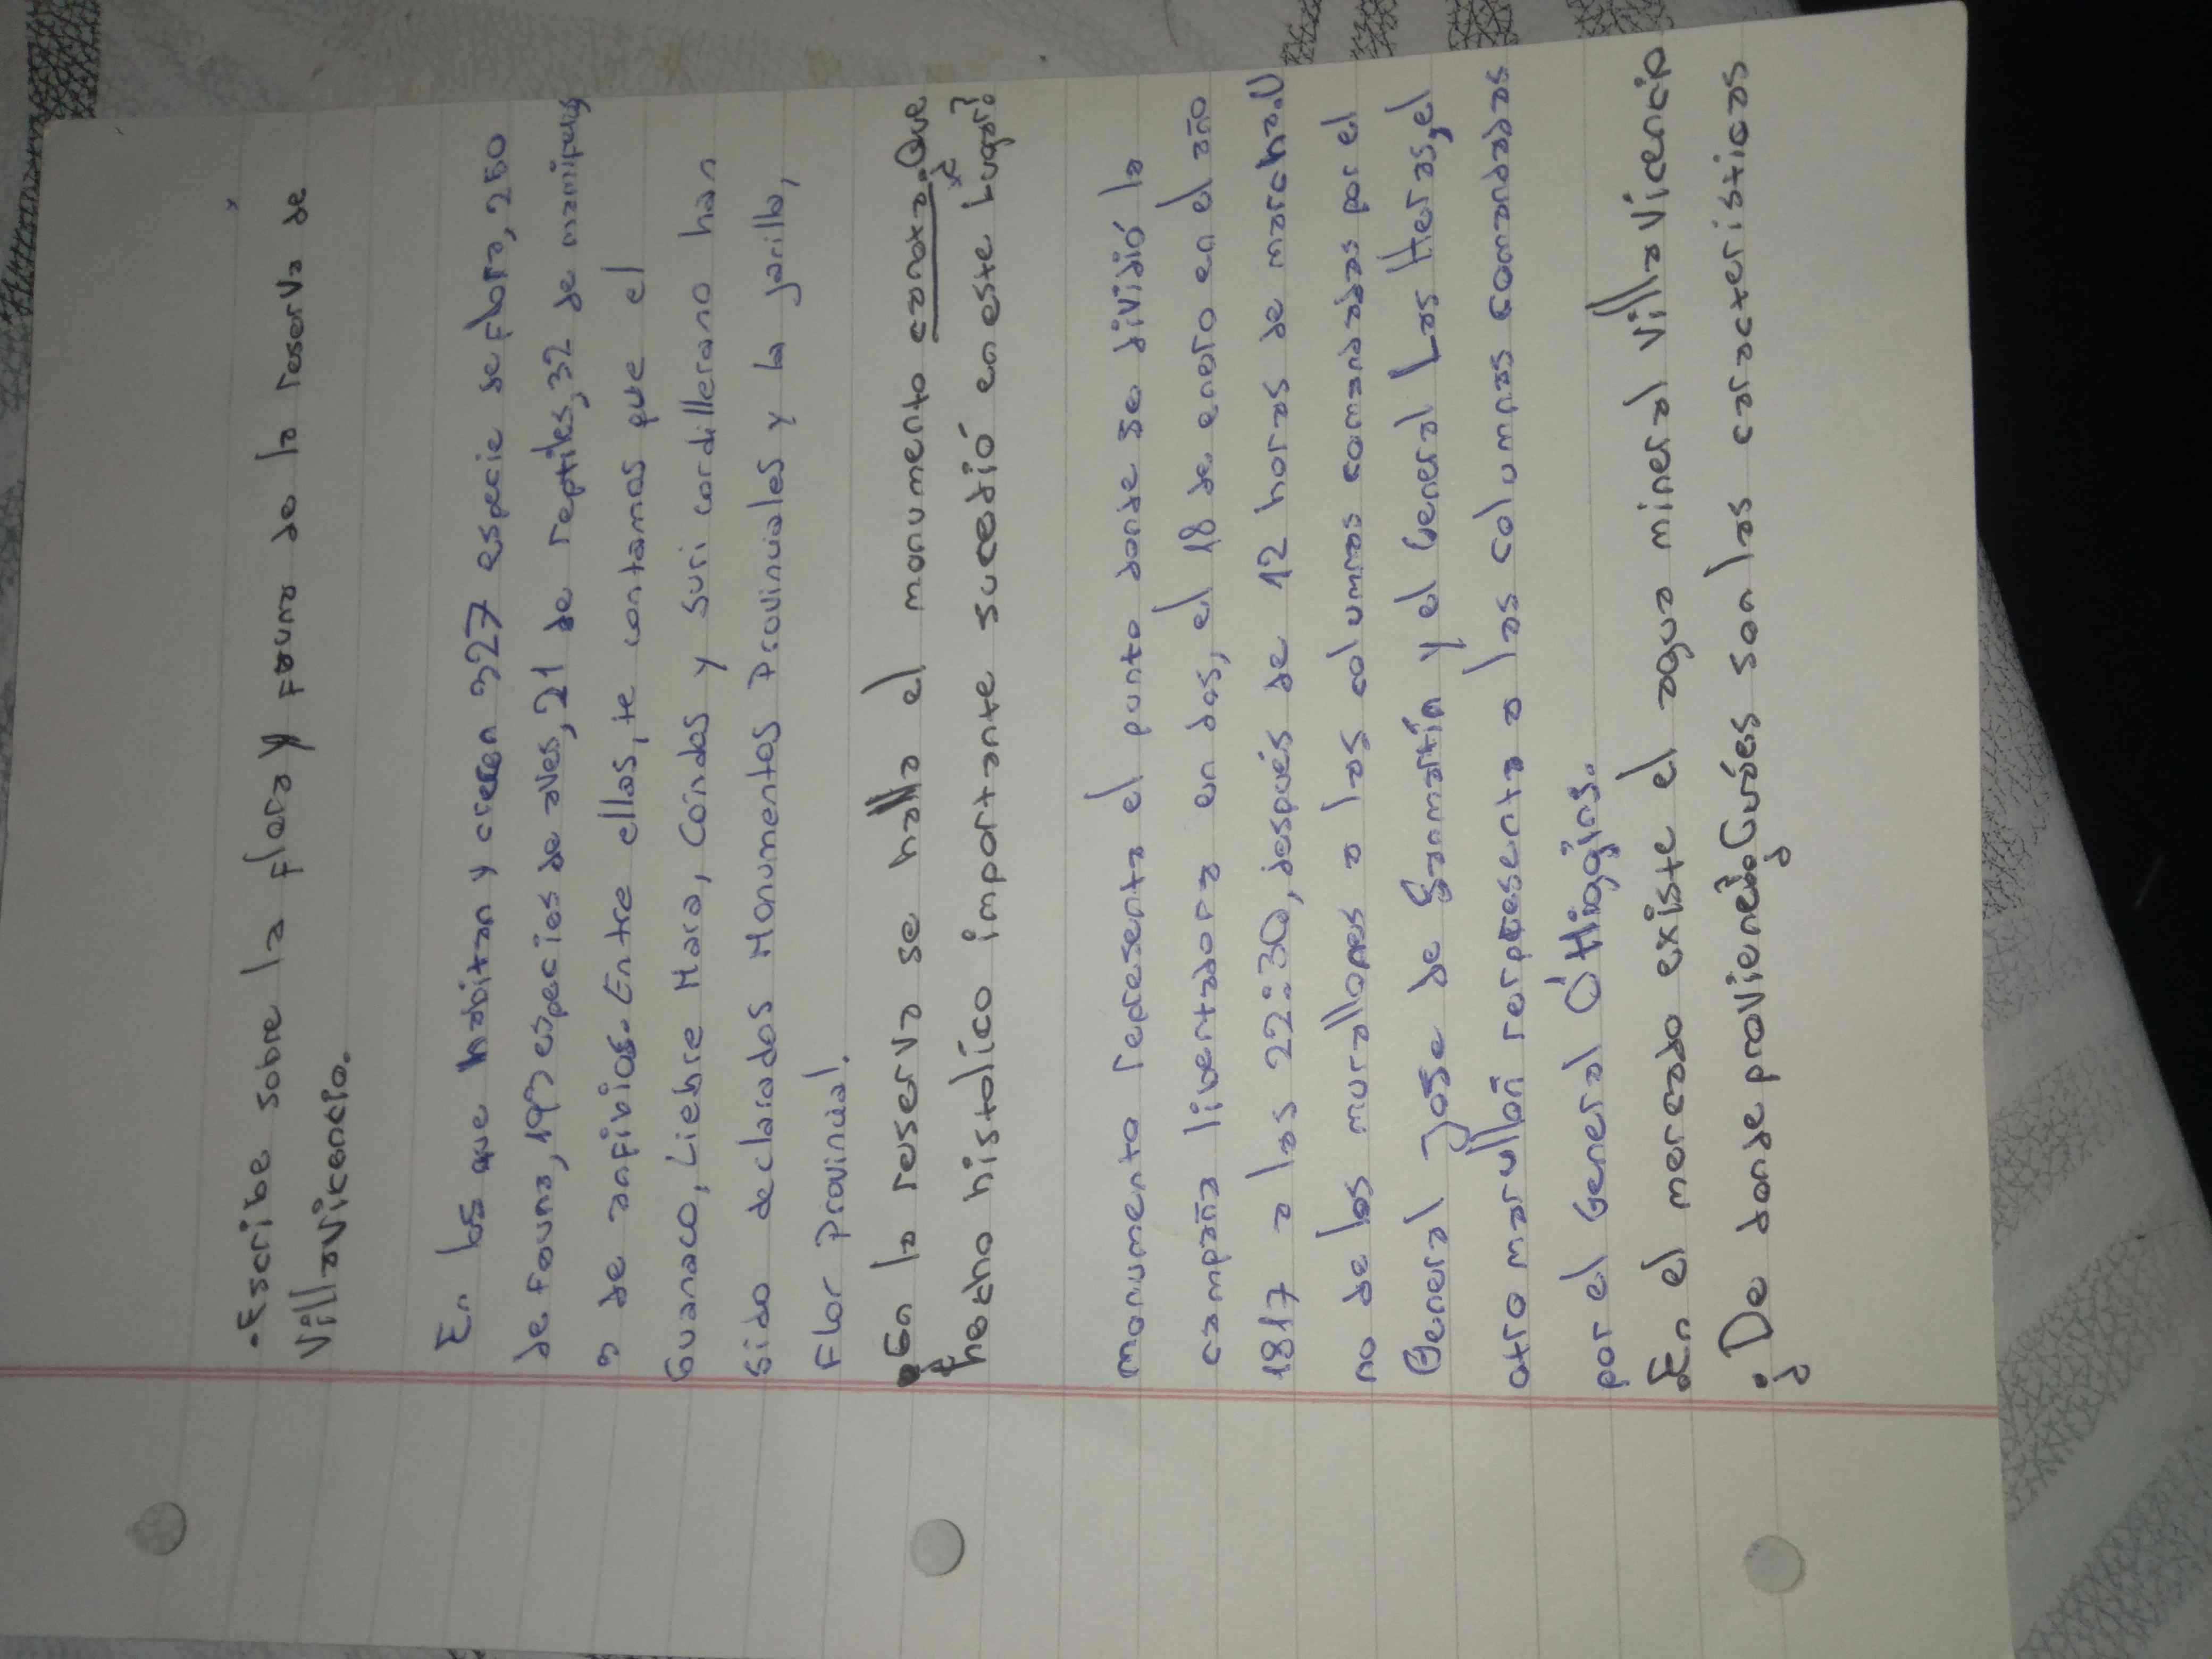 •Escribe sobre la flora y fauna de la reserva de
Villavicencio.
En los que habitan y crecen 327 especie de flora, 250
de fauna, 193 especies de aves, 21 de reptiles, 32 de mamiferos
3 de anfibios. Entre ellos, te contamos que el
Guanaco, Liebre Mara, Cóndos y Suri cordillerano han
Sido declarados Monumentos Provinciales y la jarilla,
Flor Provincial.
•En la reserva se halla el monumento canota. Que
hecho histolíco importante sucedió en este Lugar?
monumento representa el punto donde se dividió la
campaña libertadora en dos, el 18 de enero en el año
1817 a las 22:30, después de 12 horas de marcha. U
no de los murallones a las columnas comandadas por el
General José de Sanmartín y el General Las Heras, el
otro marullón rerpresenta a las columnas comandadas
por el General ÓHiggins.
•En el mercado existe el agua mineral villavicencio
¿De donde proviene? ¿Cuáes son las caracteristicas